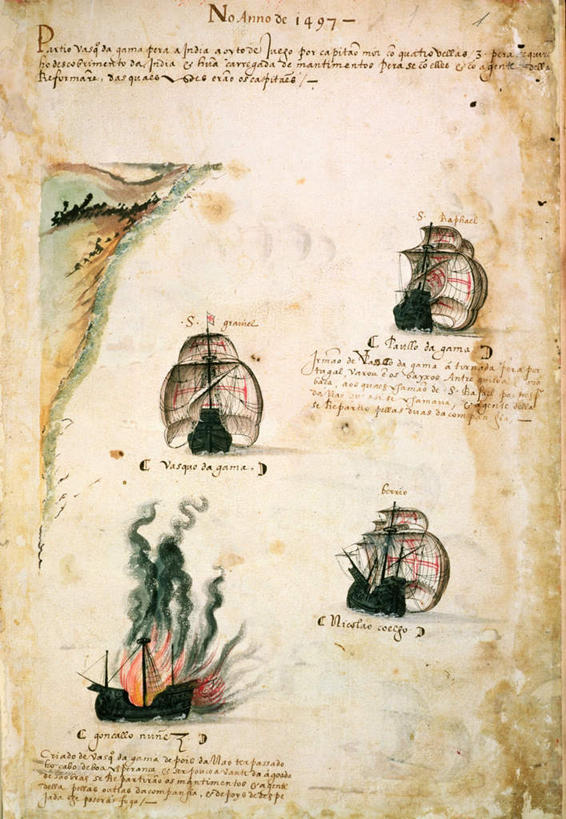 No Anno de 1497 —
1
Partio Vasq̃ da gama pera a India a oyto de Iulho por capitão mor cõ quatro vellas, 3. pera
ho descobrimento da India e hũa carregada de mantimentos pera se cõ elles e cõ a gente della
Reformarẽ, das quaes erão os capitães /—
S. Raphael
Paullo da gama
Irmão de Vasco da gama á tornada pera por
tugal, varou ẽ os bayxos Antre
baça, aos quaes chamão de S. Rafael
da Nao que asi se chamava, e a gente della
se Repartio pellas duas da companhia, —
S. graviel
Vasquo da gama.
berrio
Nicolao coelho
goncallo nunez
Criado de vasq̃ da gama depois da Nao ter passado
ho cabo de boa Esperança e ser pouco avante da agoada
de sao bras se Repartirão os mantimentos e a gente
della pellas outras da companhia, e depoys de despe
jada lhe poserão fogo /—